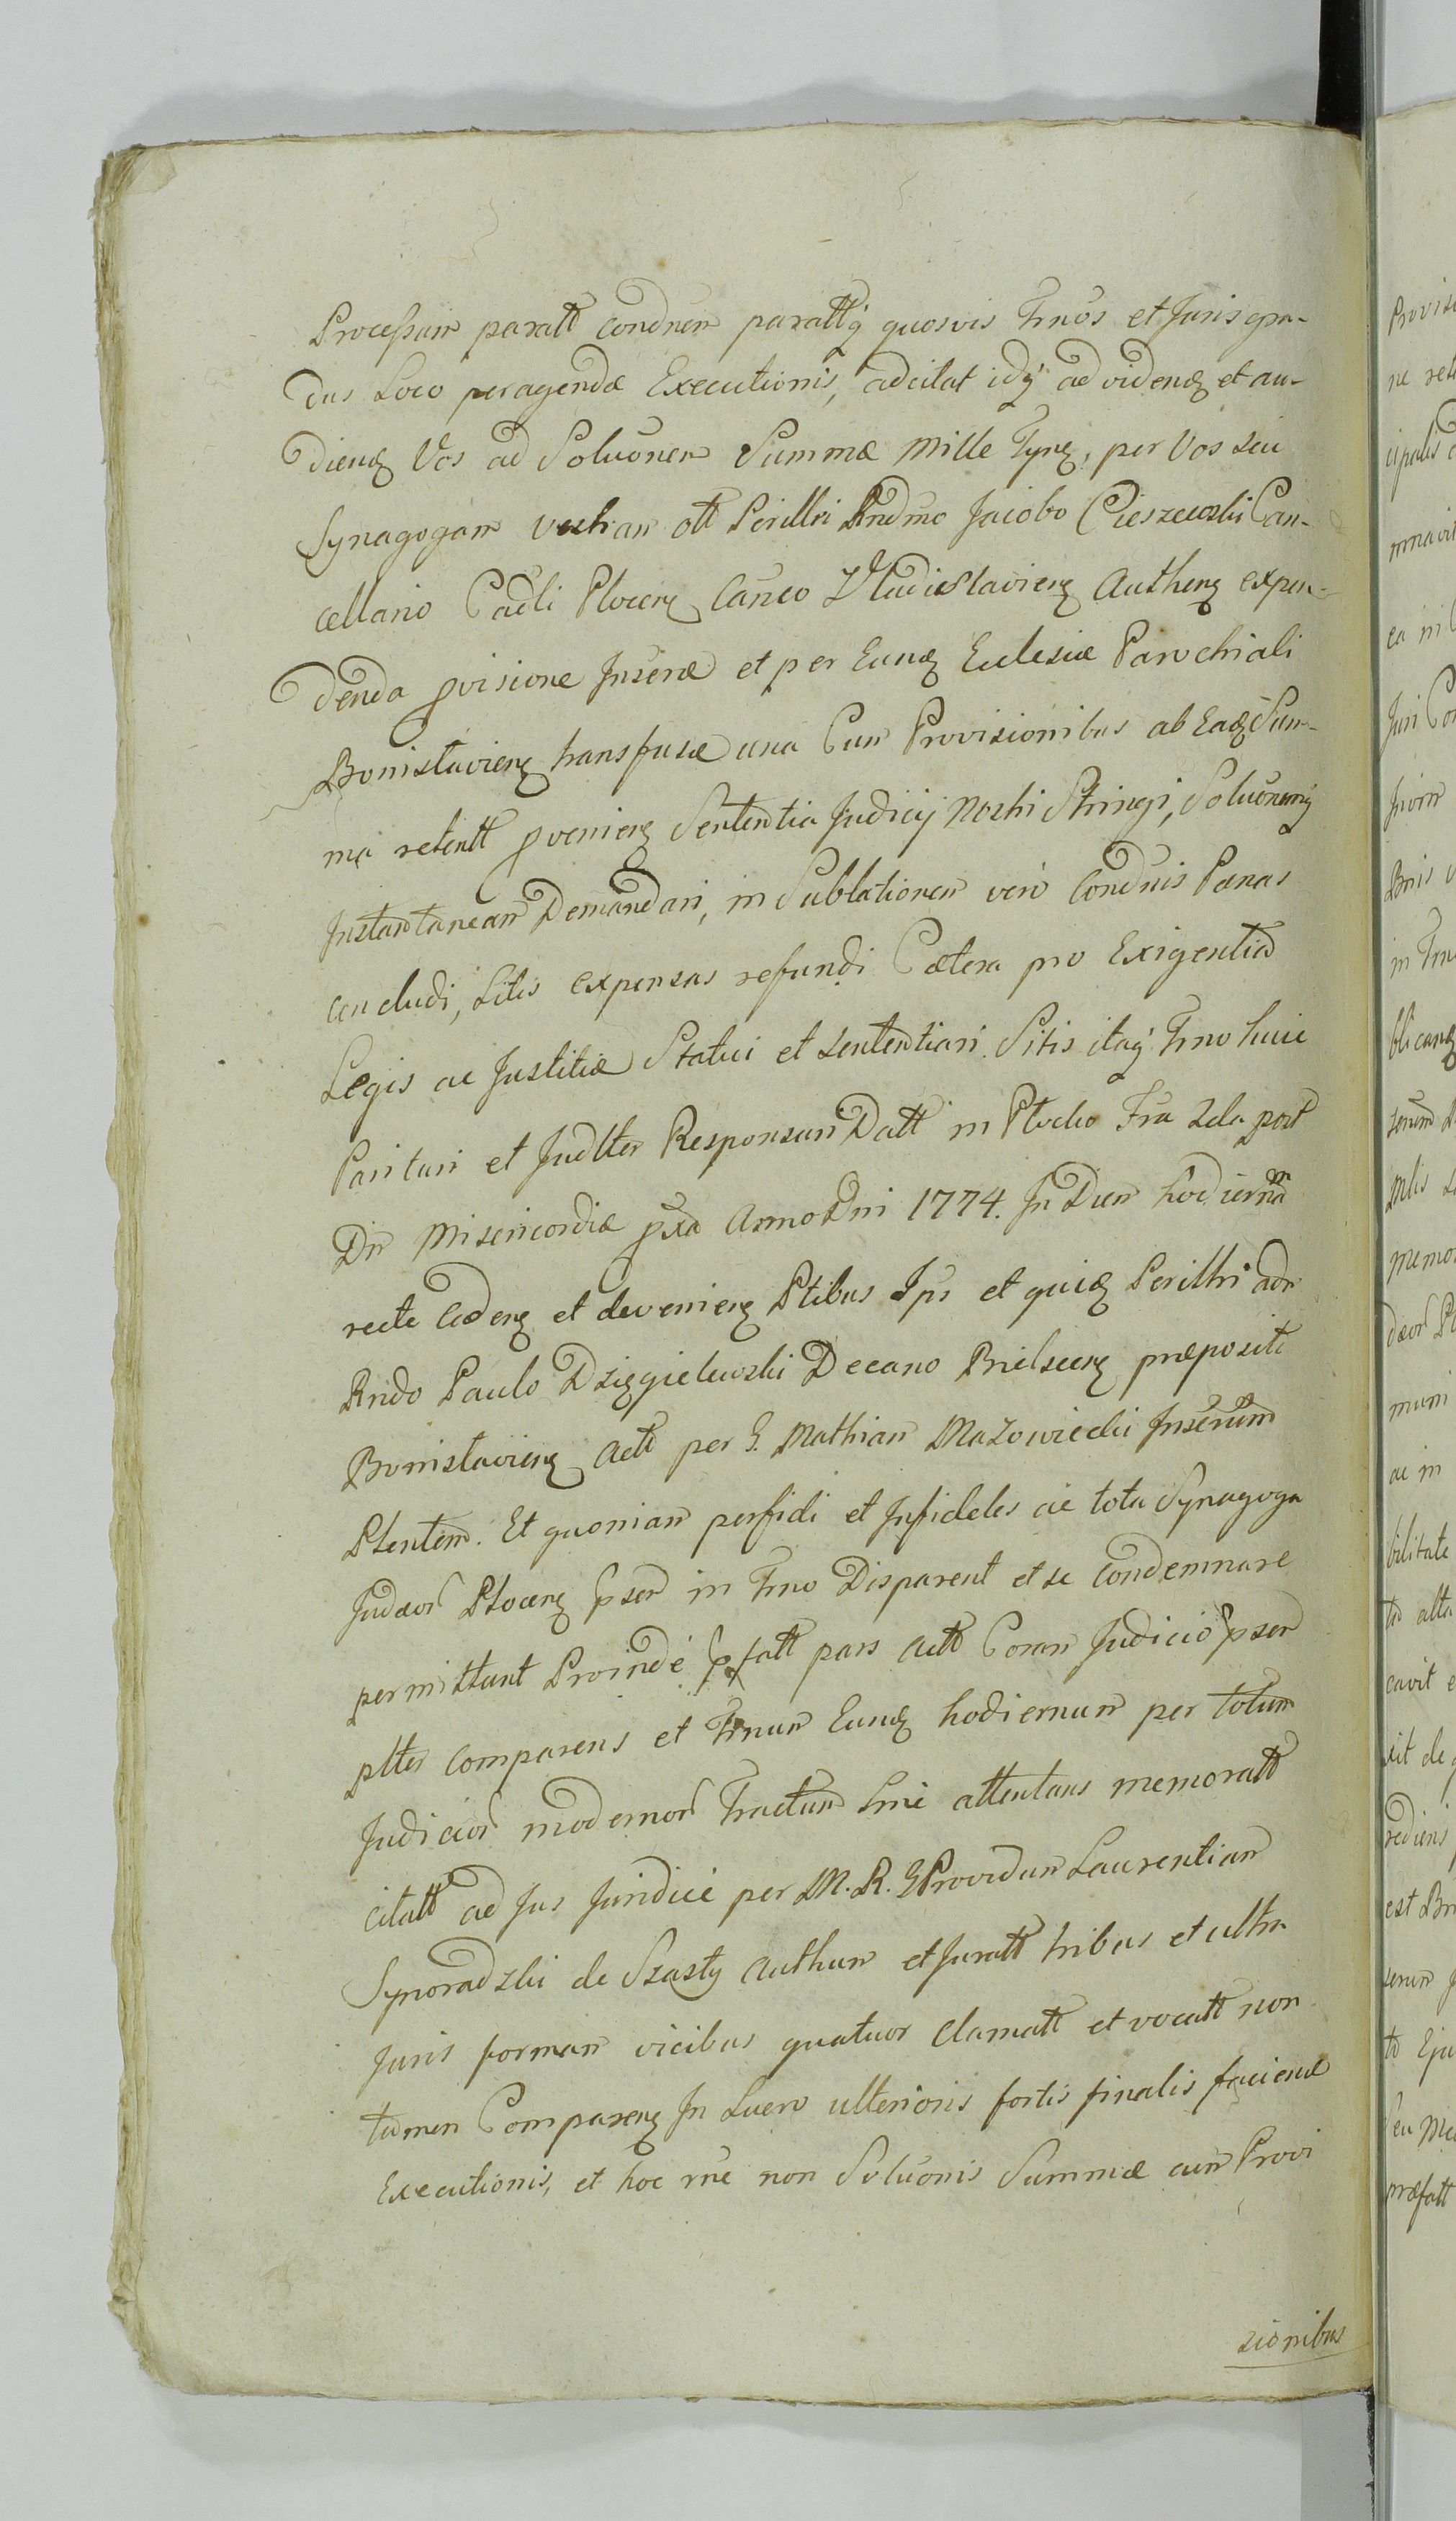 Processum paratt condnem parattq̃ quosvis Trnõs et Juris gra-
dus Loco peragendæ Executionis, adcitat idq̃ ad videnđ et au-
dienđ Vos ad Solvõnem Summæ Mille Tynf, per Vos seu
Synagogam vestram ott Perillri Rndmo Jacobo Cieszewski Can-
cellario Cadli Plocen Canco Vladislavien Authen expen-
denda pvisione Inservæ et per Eundem Eclesiæ Parochiali
Bonislavien transfusæ una Cum Provisionibus ab Eadem Sum-
ma retentt pvenien Sententia Judicij Nostri Stringi, Solvõnemq̃
Instantaneam Demandari, in Sublationem vero Condnis Pænas
concludi, Litis expensas refundi Cætera pro Exigentia
Legis ac Justitiæ Statui et sententiari. Sitis itaq̃ Trno huic
Parituri et Judlter Responsuri Datt in Plocko Fra 2da post
Dm Misericordiæ pxa Anno Dni 1774. In Diem hodiernam
recte Caden et devenien Ptibus Ips et quidem Perillri adm
Rndo Paulo Dzięgielewski Decano Bielscen præposito
Bonislavien Actt per G. Mathiam Mazowiecki Inserum
Ptentem. Et quoniam perfidi et Infideles ac tota Synagoga
Judæor Plocen pser in Trno Disparent et se condemnare
permittunt Proinde pfatt pars actt Coram Judicio pser
plter comparens et Trnum Eundem hodiernum per totum
Judicior modernor Tractum Lme attentans memoratt
citatt ad Jus Juridice per M. R. G Providum Laurentium
Synoradzki de Szasty Authum et Juratt tribus et ultra
Juris formam vicibus quatuor clamatt et vocatt non
tamen Comparen In Lucro ulterioris fortis finalis faciend
Executionis, et hoc rne non Solvonis Summæ cum Provi
sionibus